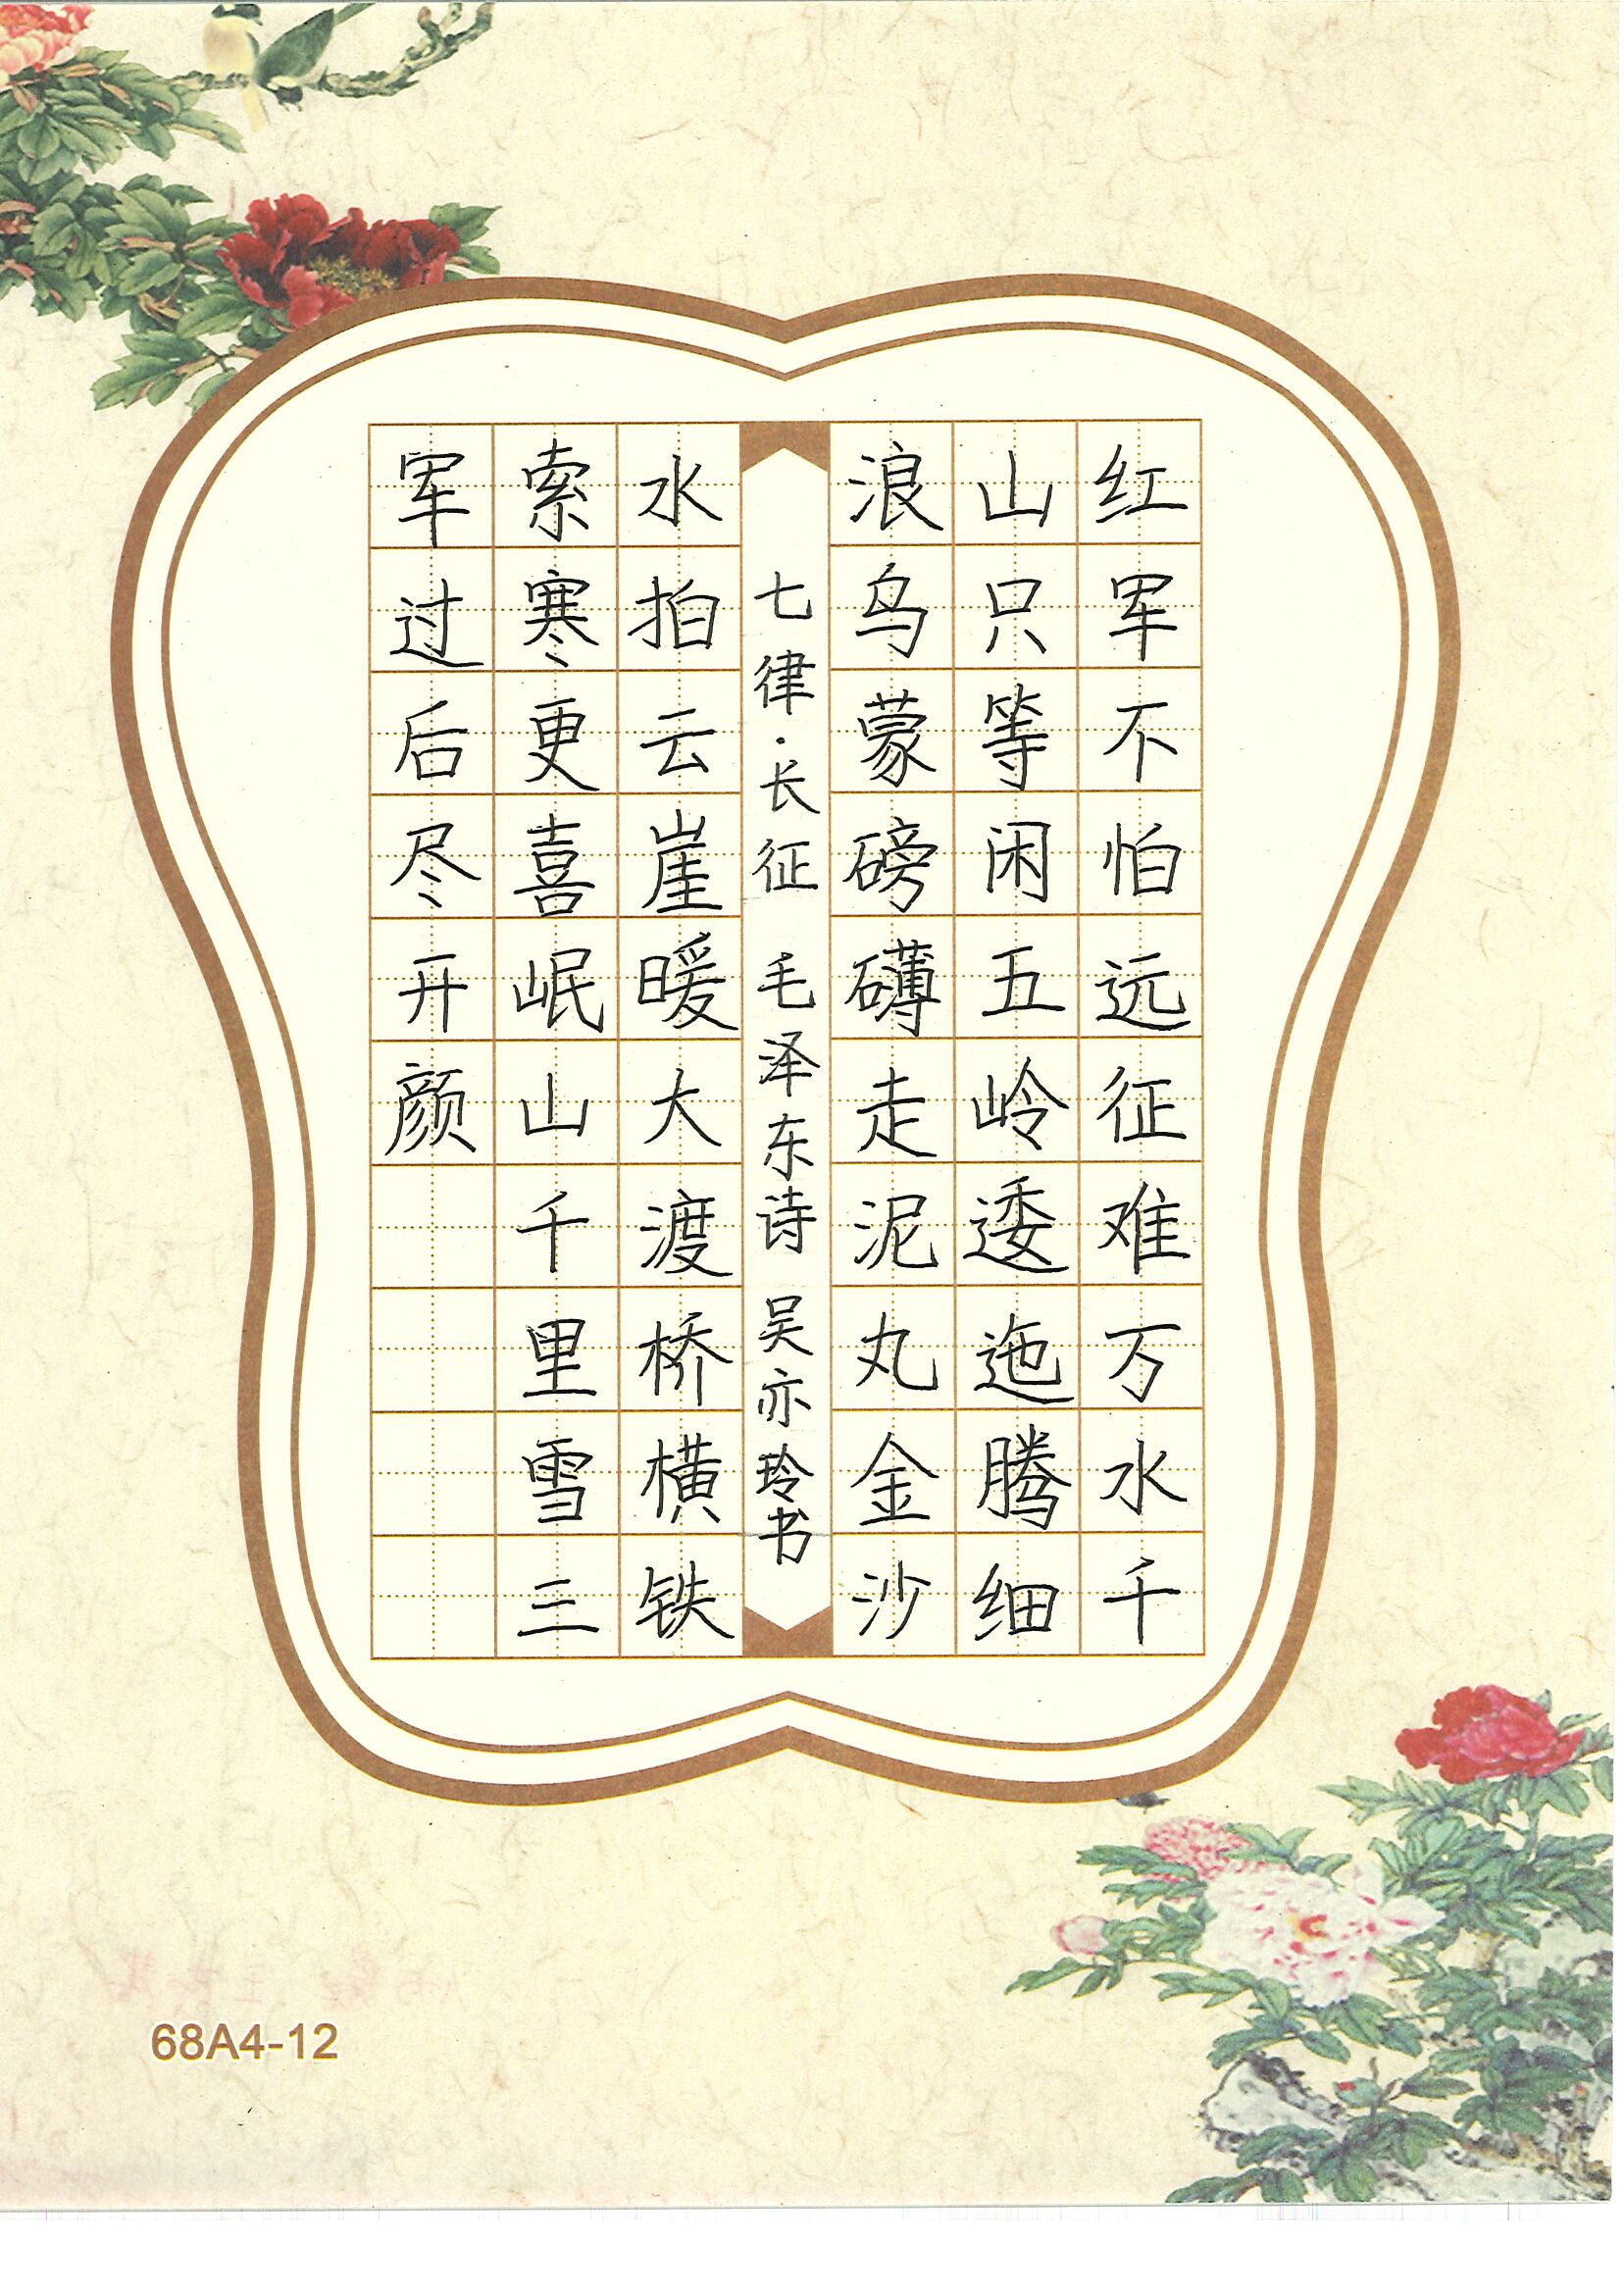 红军不怕远征难万水千
山只等闲五岭逶迤腾细
浪乌蒙磅礴走泥丸金沙
七律·长征 毛泽东诗 吴亦玲书
水拍云崖暖大渡桥横铁
索寒更喜岷山千里雪三
军过后尽开颜
68A4-12